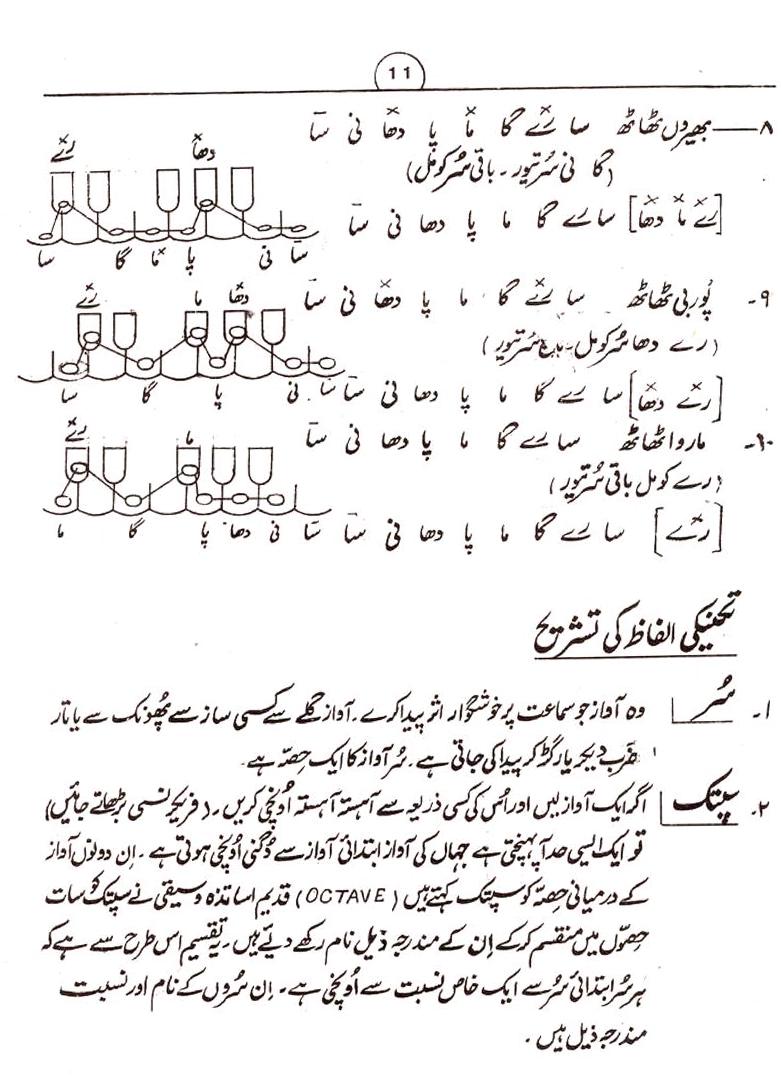 11
۸— بھیروں ٹھاٹھ سا رے گا ما پا دھا نی سا
(گا نی سُر تیور - باقی سُر کومل)
رے دھا
[رے ما دھا] سا رے گا ما پا دھا نی سا
سا گا ما پا نی سا
۹- پُوربی ٹھاٹھ سا رے گا ما پا دھا نی سا
رے ما دھا
(رے دھا سُر کومل - سُر تیور)
[رے دھا] سا رے گا ما پا دھا نی سا سا نی پا گا سا
۱۰- ماروا ٹھاٹھ سا رے گا ما پا دھا نی سا
رے ما
(رے کومل باقی سُر تیور)
[رے] سا رے گا ما پا دھا نی سا سا نی دھا پا گا ما
تکنیکی الفاظ کی تشریح
۱- سُر وہ آواز جو سماعت پر خوشگوار اثر پیدا کرے۔ آواز گلے سے کسی ساز سے پُھونک سے یا تار
ضرب دیکر یا رگڑ کر پیدا کی جاتی ہے۔ سُر آواز کا ایک حِصّہ ہے۔
۲- سپتک اگر ایک آواز لیں اور اُس کی کسی ذریعہ سے آہستہ آہستہ اُونچی کریں۔ (فریکوئنسی بڑھاتے جائیں)
تو ایک ایسی حد آ پہنچتی ہے جہاں کی آواز ابتدائی آواز سے دُگنی اُونچی ہوتی ہے۔ اِن دونوں آواز
کے درمیانی حِصّہ کو سپتک کہتے ہیں (OCTAVE) قدیم اساتذہ موسیقی نے سپتک کو سات
حِصّوں میں منقسم کر کے اِن کے مندرجہ ذیل نام رکھے دیئے ہیں۔ یہ تقسیم اس طرح سے ہے کہ
ہر سُر ابتدائی سُر سے ایک خاص نسبت سے اُونچی ہے۔ اِن سُروں کے نام اور نسبت
مندرجہ ذیل ہیں۔